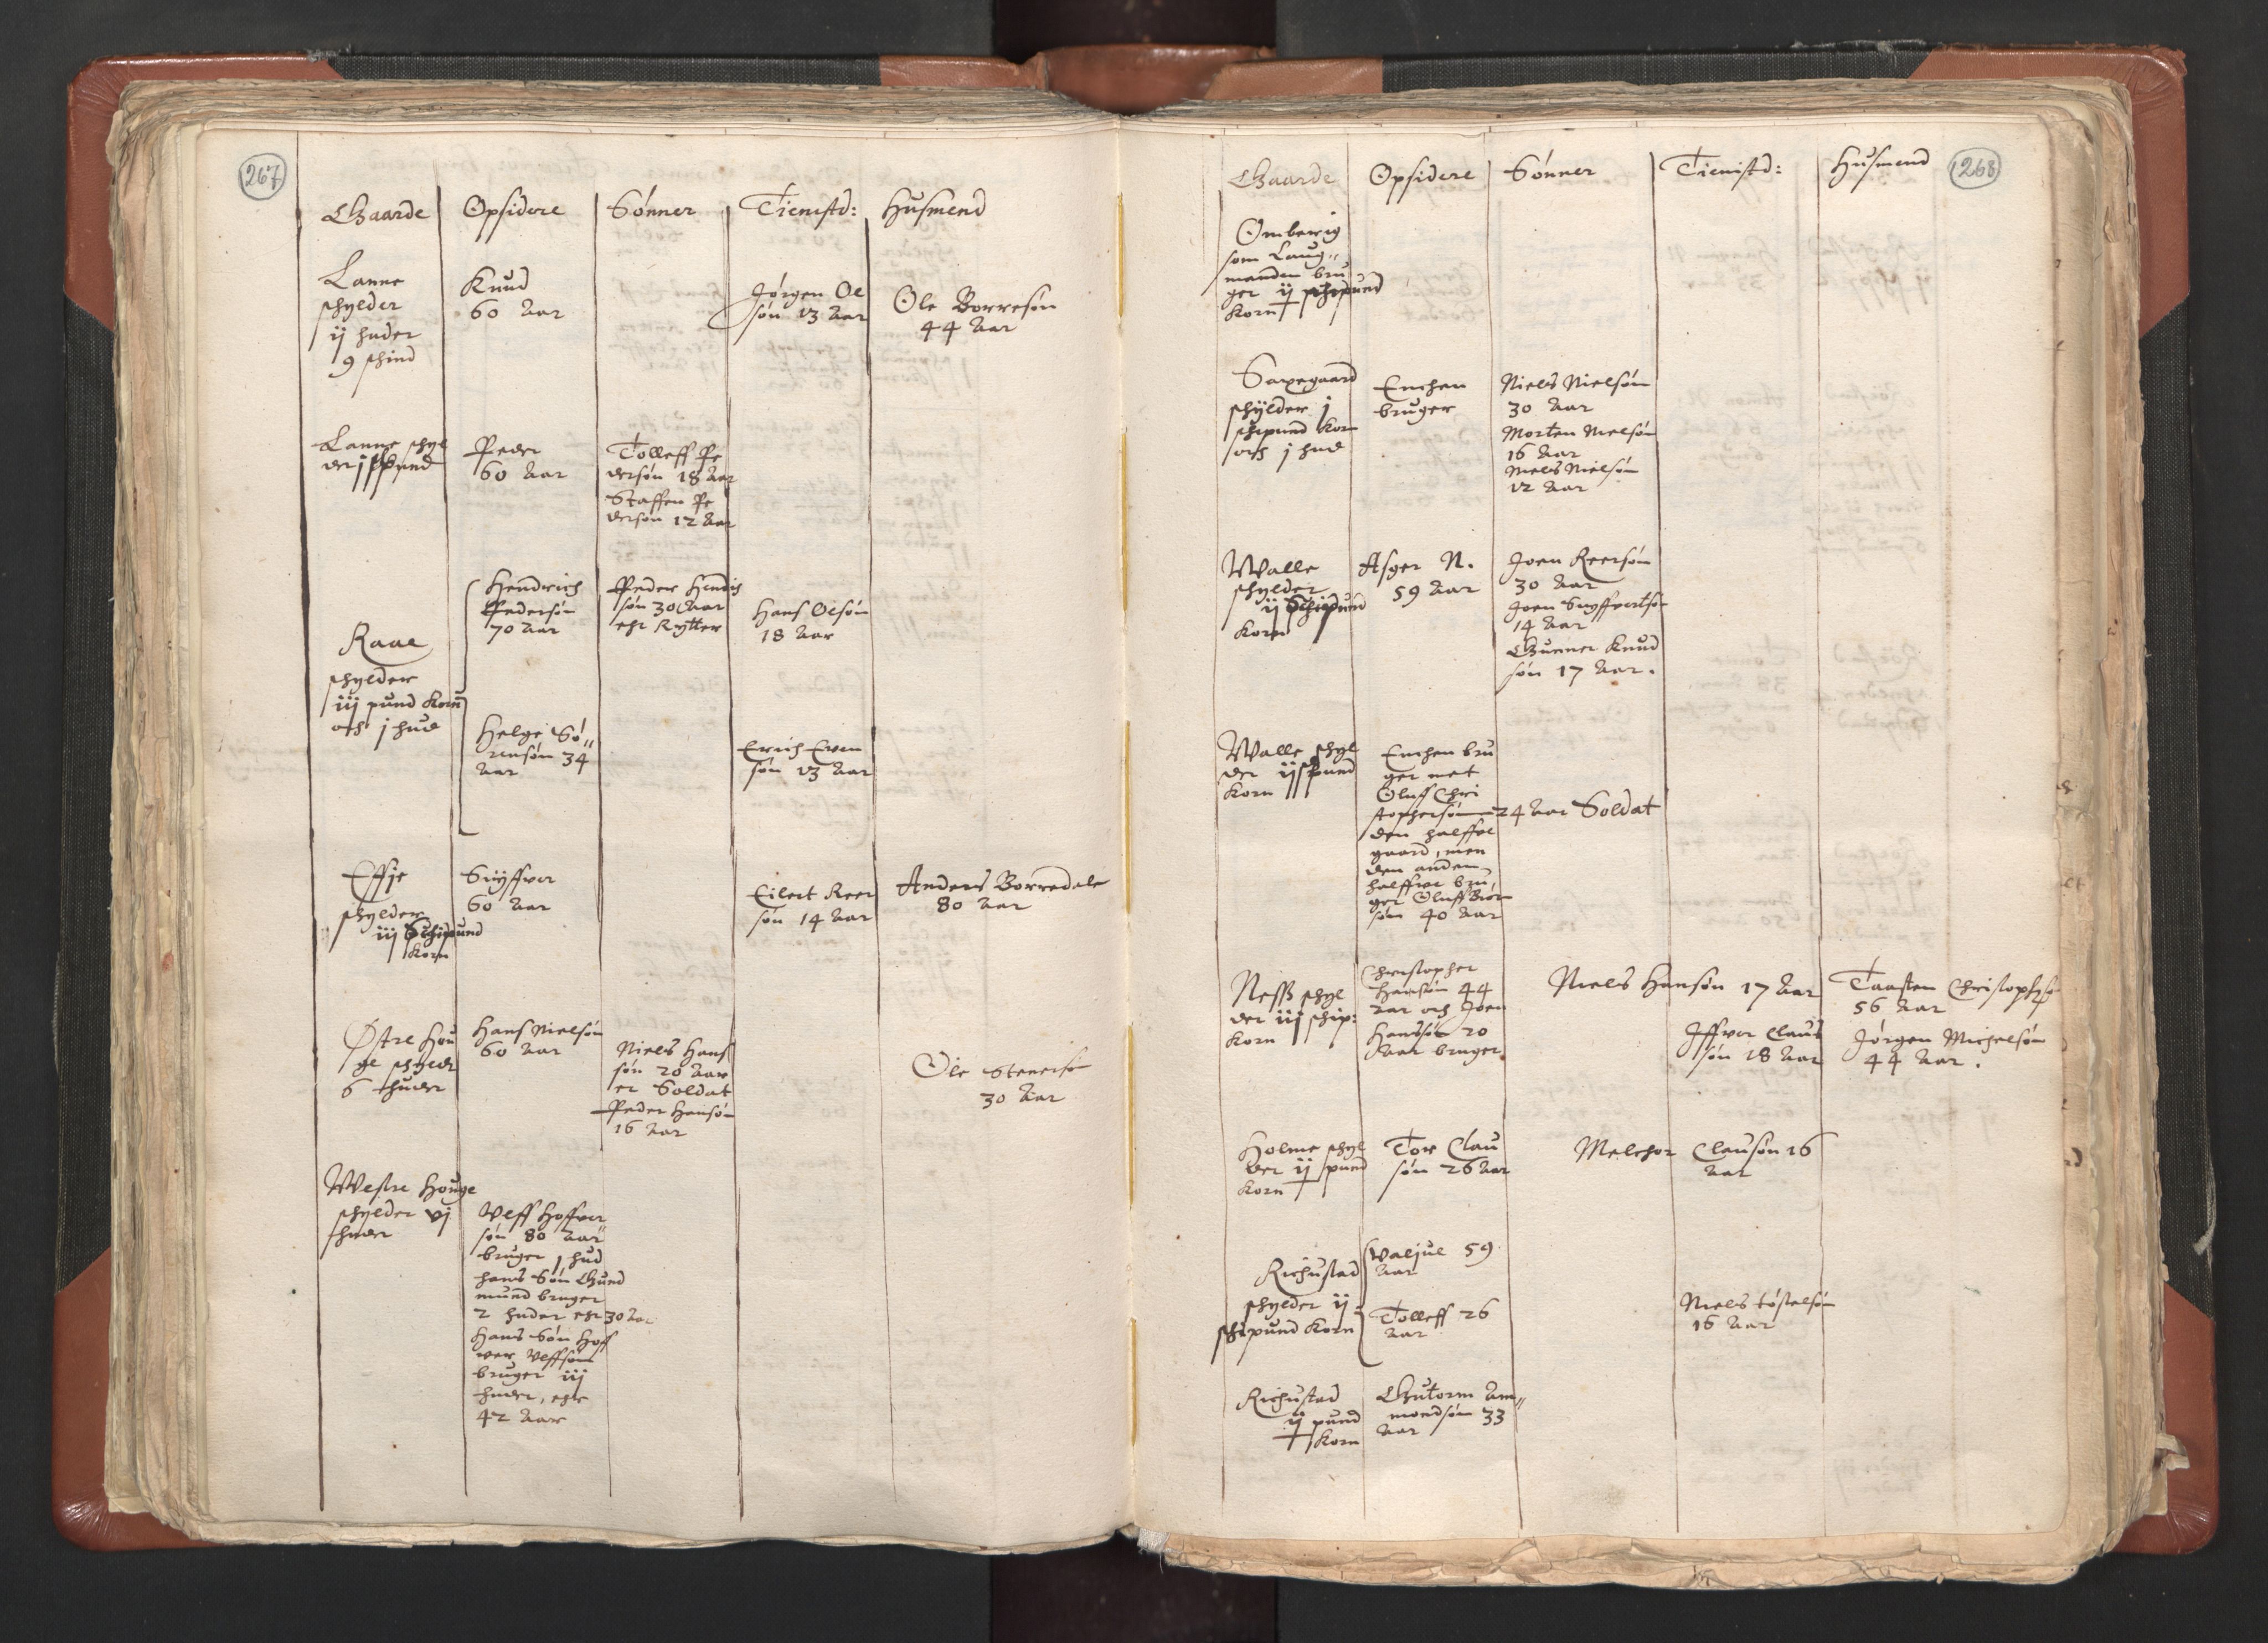 267
Gaarde Opsidere Sønner Tienistd: Husmend
Lanne
schylder
ij huder
9 schind
Knud
60 Aar
Jørgen Ol
søn 13 Aar
Ole Borresøn
44 Aar
Lanne schyl
der j pund
Peder
60 Aar
Tolleff Pe
dersøn 18 Aar
Staffen Pe
dersøn 12 Aar
Raae
schylder
iij pund Korn
och j hud
Hendrich
Pedersøn
70 Aar
Peder Hendich
søn 30 Aar
ehr Rytter
Hans Olsøn
18 Aar
Helge Sø
rensøn 34
Aar
Erich Even
søn 13 Aar
Effje
schylder
iij Schipund
Korn
Siiffver
60 Aar
Eilert Reer
søn 14 Aar
Anders Borredale
80 Aar
Østre Hou
ge schyldr
6 huder
Hans Nielsøn
60 Aar
Niels Hans
søn 20 Aar
er Soldat
Peder Hansøn
16 Aar
Ole Stenersø
30 Aar
Westre Houge
schylder vj
huder
Ulff Hoffver
søn 80 Aar
bruger j hud
hans Søn Gund
mund bruger
2 huder ehr 30 Aar
Hans Søn Hoff
wer Ulffsøn
bruger iij
huder, ehr
42 Aar
268
Gaarde Opsidere Sønner Tienistd: Husmend
Omberig
som Laug
manden bru
ger ij schipund
Korn
Saxegaard
schylder j
schipund Korn
och j hud
Enchen
bruger
Niels Nielsøn
30 Aar
Morten Nielsøn
16 Aar
Niels Nielsøn
12 Aar
Walle
schylder
ij Schipund
Korn
Asger N.
59 Aar
Joen Reersøn
30 Aar
Joen Suyffvertsø
14 Aar
Gunner Knud
søn 17 Aar.
Walle schyl
der ij pund
Korn
Enchen bru
ger met
Oluff Chri
stophersøn 24 Aar Soldat
den halffve
gaard, men
den anden
halffve bru
ger Oluff Biør
søn 40 Aar
Ness schyl
der iij schip:
Korn
Christopher
Hansøn 44
Aar och Joen
Hanssøn 20
Aar bruger
Niels Hansøn 17 Aar
Iffver Claus
søn 18 Aar
Taasten Christophersø
56 Aar
Jørgen Michelsøn
44 Aar.
Holme schyl
der ij pund
Korn
Tor Clau
søn 26 Aar
Melchor Clausøn 16
Aar
Richustad
schylder ij
schipund Korn
Waljul 59
Aar
Tolleff 26
Aar
Niels tostelsøn
16 Aar
Richustad
ij pund
Korn
Gutorm Am
mondsøn 33
Aar